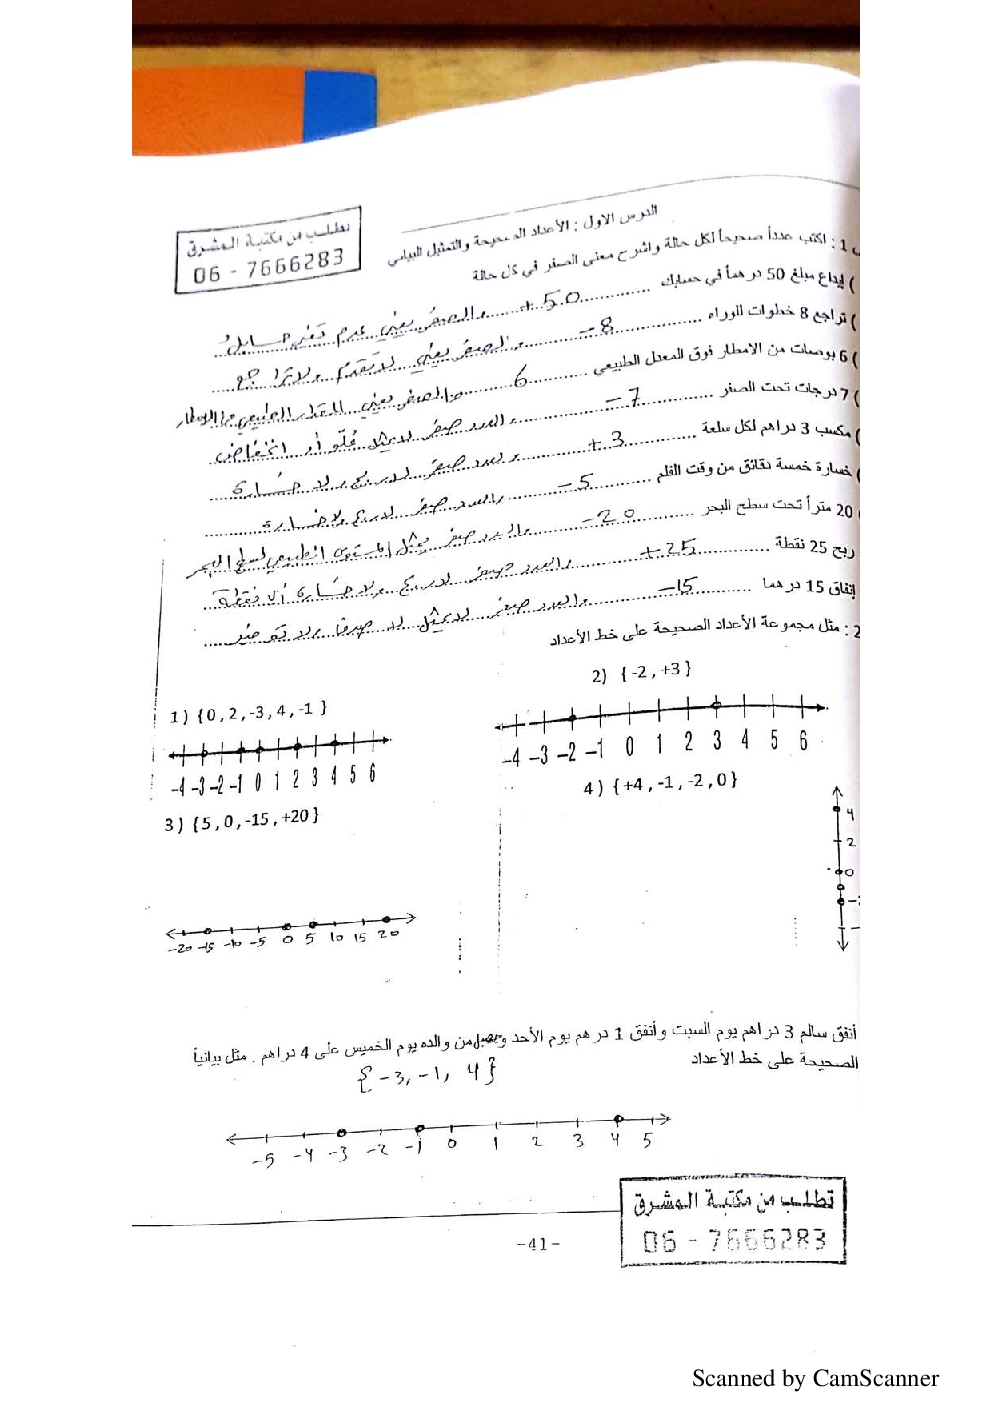 تطلب من مكتبة المشرق
06 - 7666283
الدرس الاول : الأعداد الصحيحة والتمثيل البياني
1 : اكتب عدداً صحيحاً لكل حالة واشرح معنى الصفر في كل حالة
) إيداع مبلغ 50 درهماً في حسابك ........... +50 والصفر يعني عدم تغير حسابك
) تراجع 8 خطوات للوراء ........... -8 والصفر يعني لا تقدم ولا تراجع
) 6 بوصات من الامطار فوق المعدل الطبيعي ........... 6 والصفر يعني المقدار الطبيعي من الامطار
) 7 درجات تحت الصفر ........... -7 والعدد صفر لا يمثل علو أو انخفاض
) مكسب 3 دراهم لكل سلعة ........... +3 والعدد صفر لا ربح ولا خسارة
) خسارة خمسة نقائق من وقت الفلم ........... -5 والعدد صفر لا ربح ولا خسارة
20 متراً تحت سطح البحر ........... -20 والعدد صفر يمثل المستوى الطبيعي لسطح البحر
ربح 25 نقطة ........... +25 والعدد صفر لا ربح ولا خسارة لأي نقطة
إنفاق 15 درهما ........... -15 والعدد صفر لا يمثل لا صرف ولا توفير
2 : مثل مجموعة الأعداد الصحيحة على خط الأعداد
1) {0, 2, -3, 4, -1 }
-4 -3 -2 -1 0 1 2 3 4 5 6
2) { -2 , +3 }
-4 -3 -2 -1 0 1 2 3 4 5 6
3) {5, 0, -15, +20}
-20 -15 -10 -5 0 5 10 15 20
4) {+4 , -1, -2, 0}
4
2
0
أنفق سالم 3 دراهم يوم السبت وأنفق 1 درهم يوم الأحد وحصل من والده يوم الخميس على 4 دراهم . مثل بيانياً
الصحيحة على خط الأعداد
{-3, -1, 4}
-5 -4 -3 -2 -1 0 1 2 3 4 5
تطلب من مكتبة المشرق
06 - 7666283
-41-
Scanned by CamScanner